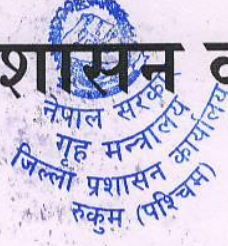 शासन
नेपाल सरकार
गृह मन्त्रालय
जिल्ला प्रशासन कार्यालय
रुकुम (पश्चिम)